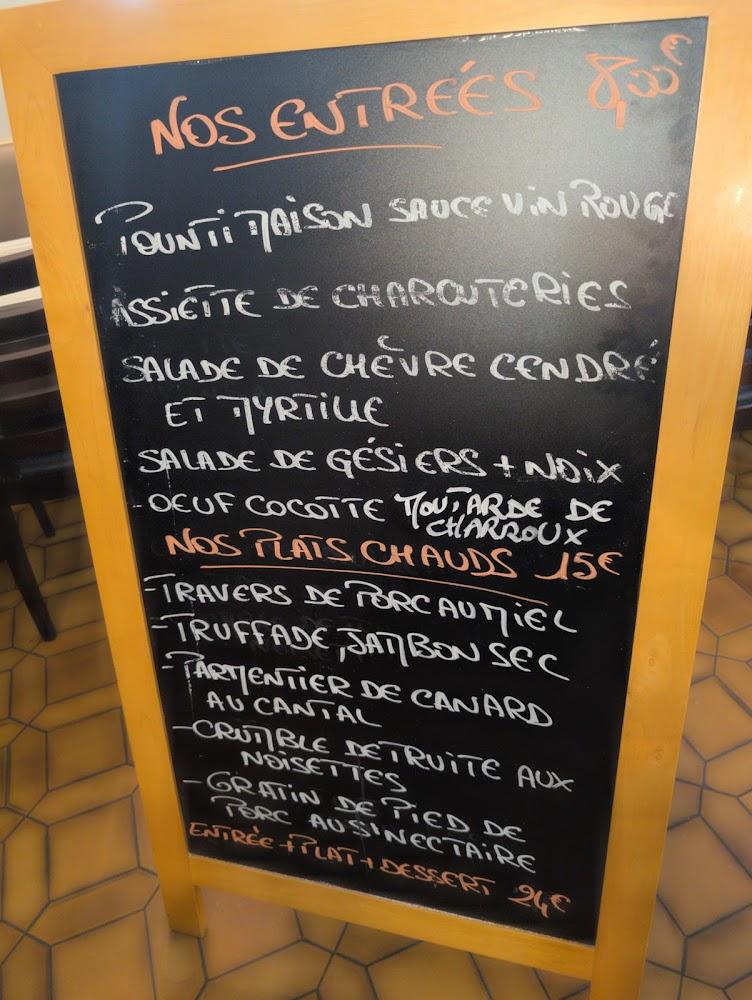 NOS ENTREÉS 8,00€
POUNTI MAISON SAUCE VIN ROUGE
ASSIETTE DE CHARCUTERIES
SALADE DE CHÈVRE CENDRÉ
ET MYRTILLE
-SALADE DE GÉSIERS + NOIX
-OEUF COCOTTE MOUTARDE DE
CHARROUX
NOS PLATS CHAUDS 15€
-TRAVERS DE PORC AU MIEL
-TRUFFADE, JAMBON SEC
-PARMENTIER DE CANARD
AU CANTAL
-CRUMBLE DE TRUITE AUX
NOISETTES
-GRATIN DE PIED DE
PORC AU STNECTAIRE
ENTRÉE+PLAT+DESSERT 24€